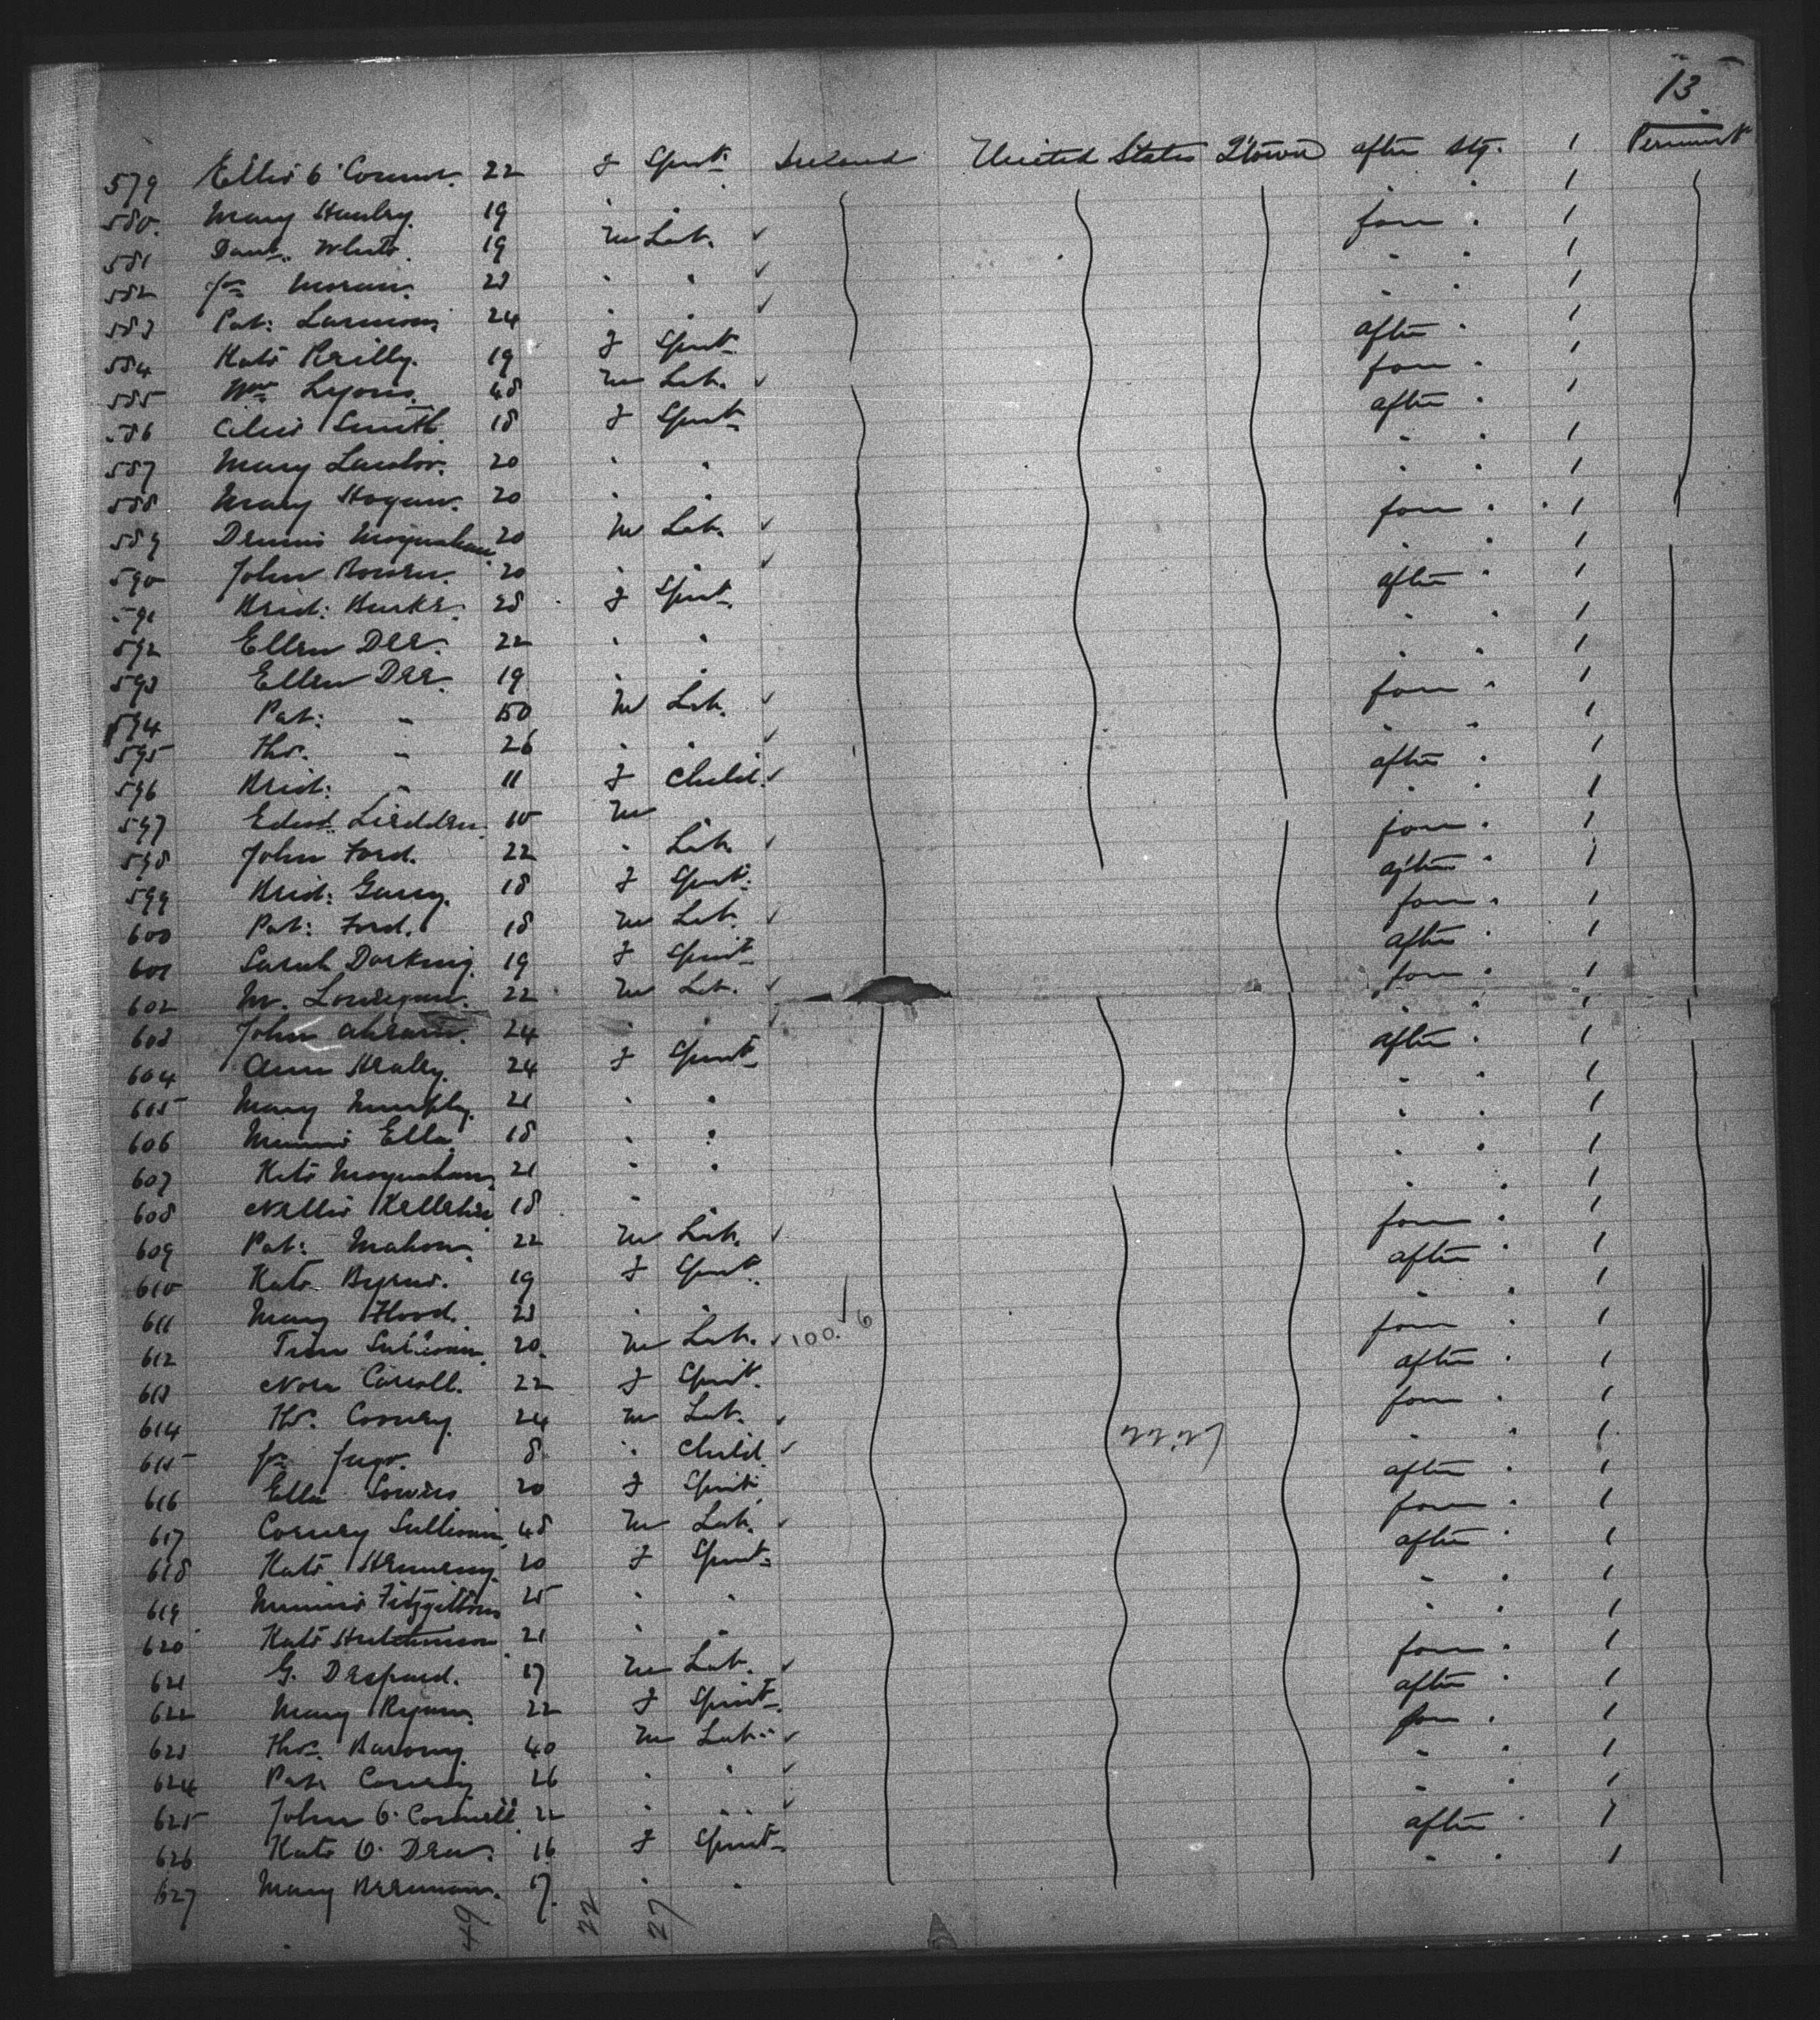 13
579 Ellie O'Connor. 22 f Spinst. Ireland United States Q'town after stg. 1 Permanent
580. Mary Hanley. 19 " " " " 1
581 Danl. White. 19 m Lab. ✓ fore " 1
582 Jas Moran. 23 " " ✓ " " 1
583 Pat: 24 " " ✓ " " 1
584 Kate Reilly. 19 f Spinst. after " 1
585 Wm Lyons. 48 m Lab. ✓ fore " 1
586 Smith. 18 f Spinst. after " 1
587 Mary Lawlor. 20 " " " " 1
588 Mary Hogan. 20 " " " " 1
589 Dennis Moynahan 20 m Lab. ✓ fore " 1
590 John Bowen. 20 " " ✓ " " 1
591 Brid: Burke. 28 f Spinst. after " 1
592 Ellen Dee. 22 " " " " 1
593 Ellen Dee. 19 " " " " 1
594 Pat: " 50 m Lab. ✓ fore " 1
595 Thos. " 26 " " ✓ " " 1
596 Brid: " 11 f Child. ✓ after " 1
597 Edwd. 10 m " " 1
598 John Ford. 22 " Lab. ✓ fore " 1
599 Brid: Garry. 18 f Spinst. after " 1
600 Pat: Ford. 18 m Lab. ✓ fore " 1
601 Sarah Dorking. 19 f Spinst. after " 1
602 M. Lonergan. 22 m Lab. ✓ fore " 1
603 John Ahearn. 24 " " ✓ " " 1
604 Ann Healey. 24 f Spinst. after " 1
605 Mary Murphy. 21 " " " " 1
606 Minnie Ella. 18 " " " " 1
607 Kate Moynahan 21 " " " " 1
608 Nellie Kelleher 18 " " " 1
609 Pat: Mahon. 22 m Lab. ✓ fore " 1
610 Kate Byrne. 19 f Spinst. after " 1
611 Mary Flood. 23 " " " " 1
612 Tim Sullivan. 20. m Lab. ✓ 100. 6 fore " 1
613 Nora Carroll. 22 f Spinst. after " 1
614 Thos. Cooney. 24 m Lab. ✓ fore " 1
615 Jas 8 " Child. ✓ " " 1
616 Ella 20 f Spinst. after " 1
617 Corney Sullivan 48 m Lab. ✓ fore " 1
618 Kate Hennessy. 20 f Spinst. after " 1
619 Minnie Fitzgibbons 25 " " " " 1
620 Kate Hutchinson 21 " " " " 1
621 G. Despard. 17 m Lab. ✓ fore " 1
622 Mary Ryan. 22 f Spinst. after " 1
623 Thos. 40 m Lab. ✓ fore " 1
624 Pat. 26 " " ✓ " " 1
625 John O'Connell. 22 " " ✓ " " 1
626 Kate O'Dea. 16 f Spinst. after " 1
627 Mary Brennan. 17. " " " " 1
49 22 27